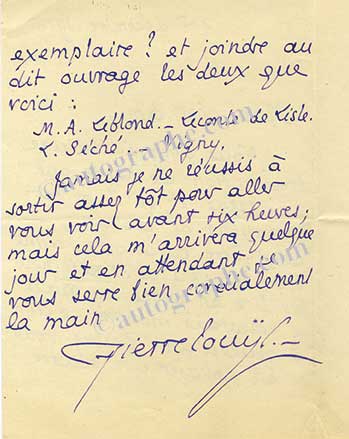 exemplaire ? et joindre au
dit ouvrage les deux que
voici :
M. A. Leblond. _ Leconte de Lisle.
L. Séché. _ Vigny.
Jamais je ne réussis à
sortir assez tôt pour aller
vous voir avant six heures;
mais cela m'arrivera quelque
jour et en attendant je
vous serre bien cordialement
la main
Pierre Louÿs. _
©autographe.com
©autographe.com
©autographe.com